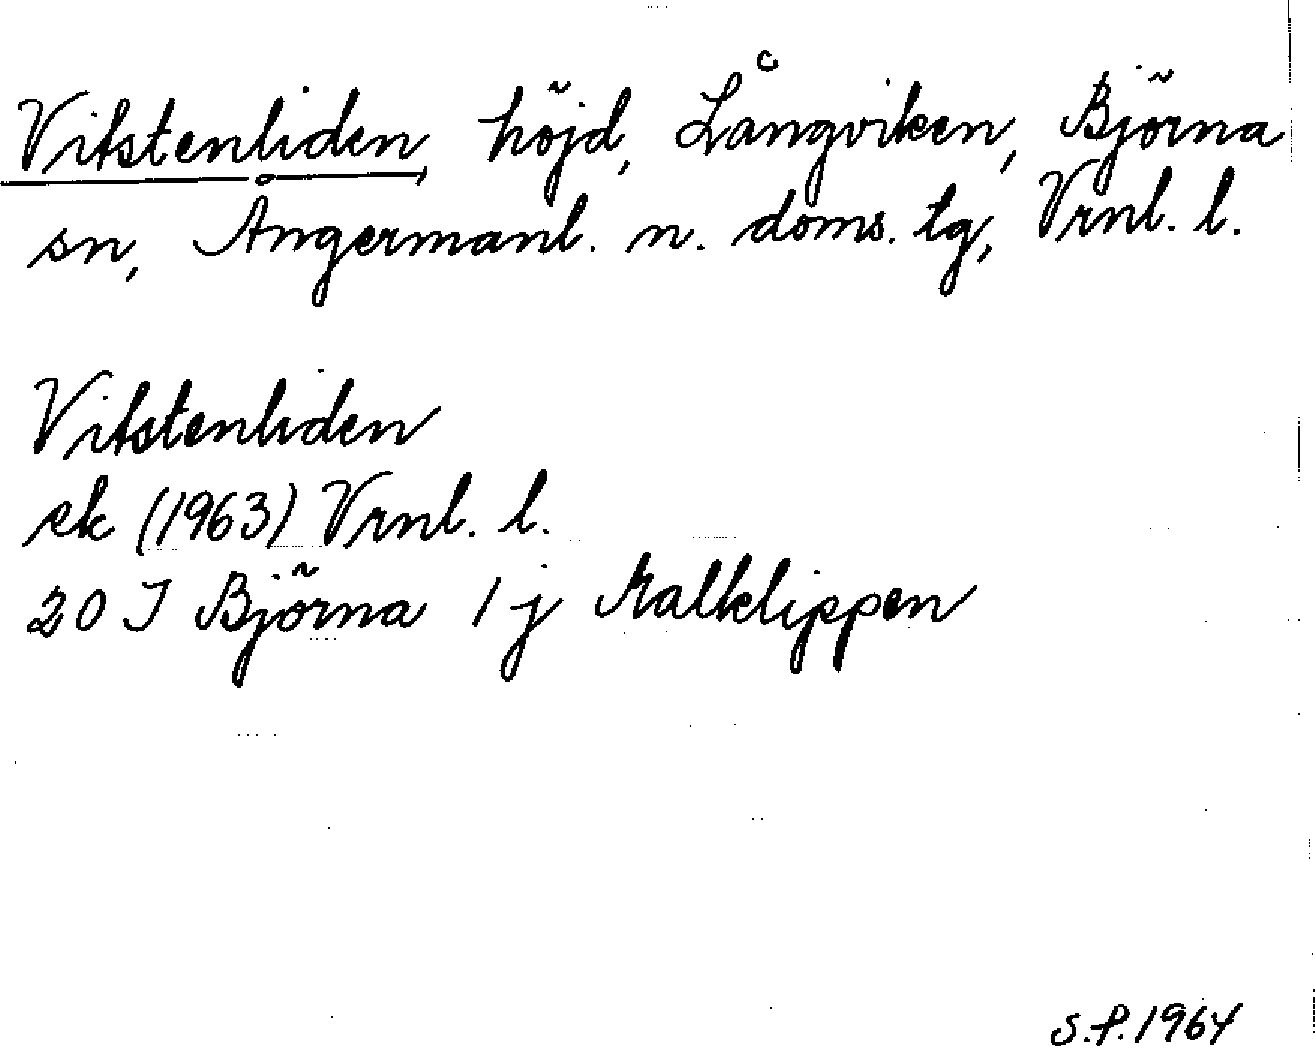 Vitstenliden, höjd, Långviken, Björna
sn, Ångermanl. n. doms. tg, Vrnl. l.
Vitstenliden
ek (1963) Vrnl. l.
20 I Björna 1 j Kalklippen
S.P. 1964